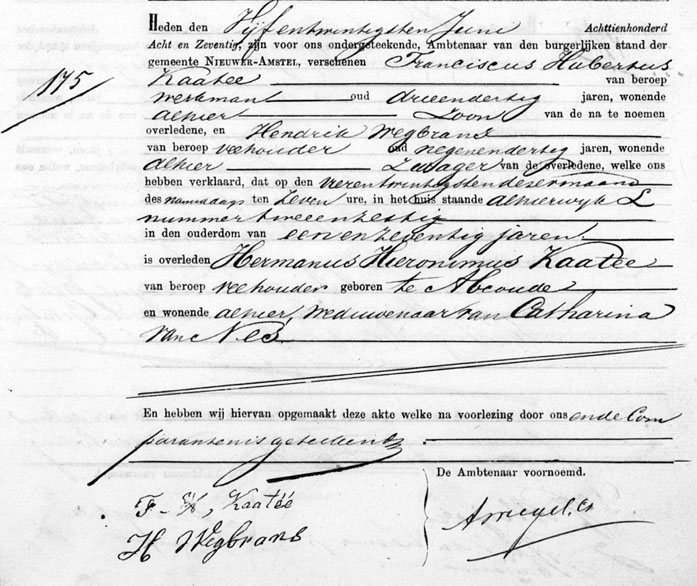 Heden den Vijfentwintigsten Juni Achttienhonderd
Acht en Zeventig, zijn voor ons ondergeteekende, Ambtenaar van den burgerlijken stand der
gemeente NIEUWER-AMSTEL, verschenen Franciscus Hubertus
175
Kaatee van beroep
werkman oud drieendertig jaren, wonende
alhier Zoon van de na te noemen
overledene, en Hendrik Wegbrans
van beroep veehouder oud negenendertig jaren, wonende
alhier Zwager van de overledene, welke ons
hebben verklaard, dat op den vierentwintigsten dezer maand
des namiddags ten Zeven ure, in het huis staande alhier wijk L
nummer tweeenzestig
in den ouderdom van eenenzeventig jaren
is overleden Hermanus Hieronimus Kaatee
van beroep veehouder geboren te Abcoude
en wonende alhier, weduwenaar van Catharina
van Nes
En hebben wij hiervan opgemaakt deze akte welke na voorlezing door ons en de Com
paranten is geteekend
De Ambtenaar voornoemd.
F-H, Kaatéé
H Wegbrans